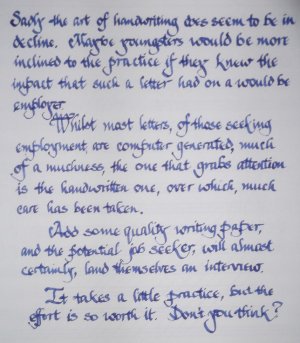 Sadly the art of handwriting does seem to be in
decline. Maybe youngsters would be more
inclined to the practice if they knew the
impact that such a letter had on a would be
employer.
Whilst most letters, of those seeking
employment are computer generated, much
of a muchness, the one that grabs attention
is the handwritten one, over which, much
care has been taken.
Add some quality writing paper,
and the potential job seeker, will almost
certainly, land themselves an interview.
It takes a little practice, but the
effort is so worth it. Don't you think?